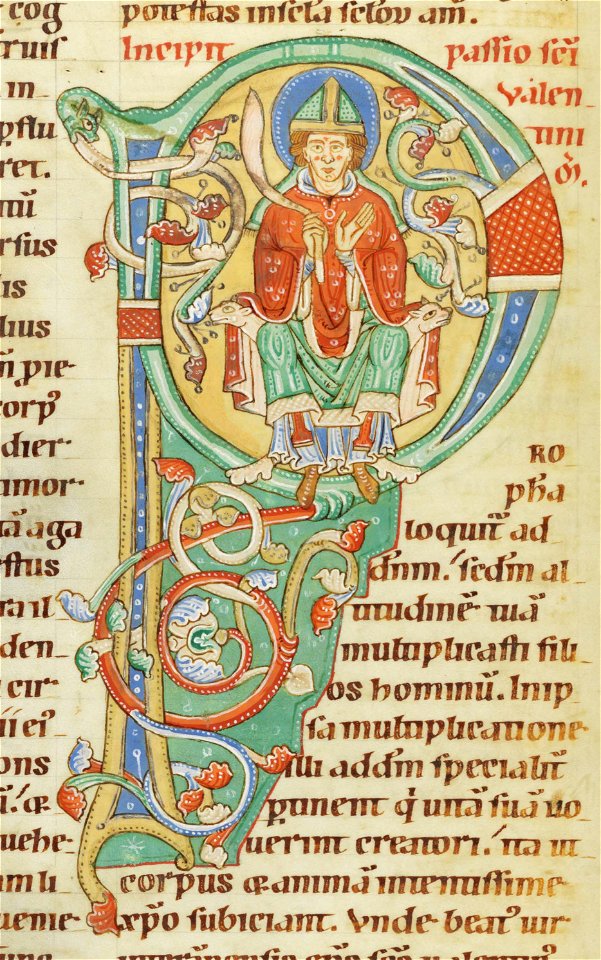 cog
truis
in
pstu
ret.
ttū
rsus
lis
lius
m̄ pie-
corp᷒
dier-
amor-
tā aga
estus
ra il
den
cir
ii ei᷒
ons
ū.᷒ æ
uehe-
am li
ueme-
potestas insela selou am̄.
Incipit passio sc̄i
Valen
tini
P
RO
pha
loquit᷑ ad
dn̄m.᷒ sedm̄ al
titudinē tuā
multiplicasti fili
os hominū. In ip
sa multiplicatione
illi ad dm̄ specialit᷑
ptinent q̇ uitā suā uo
uerint creatori.᷒ ita ut
corpus & animā intentissime
xp̄o subiciant. Vnde beat᷒ uir